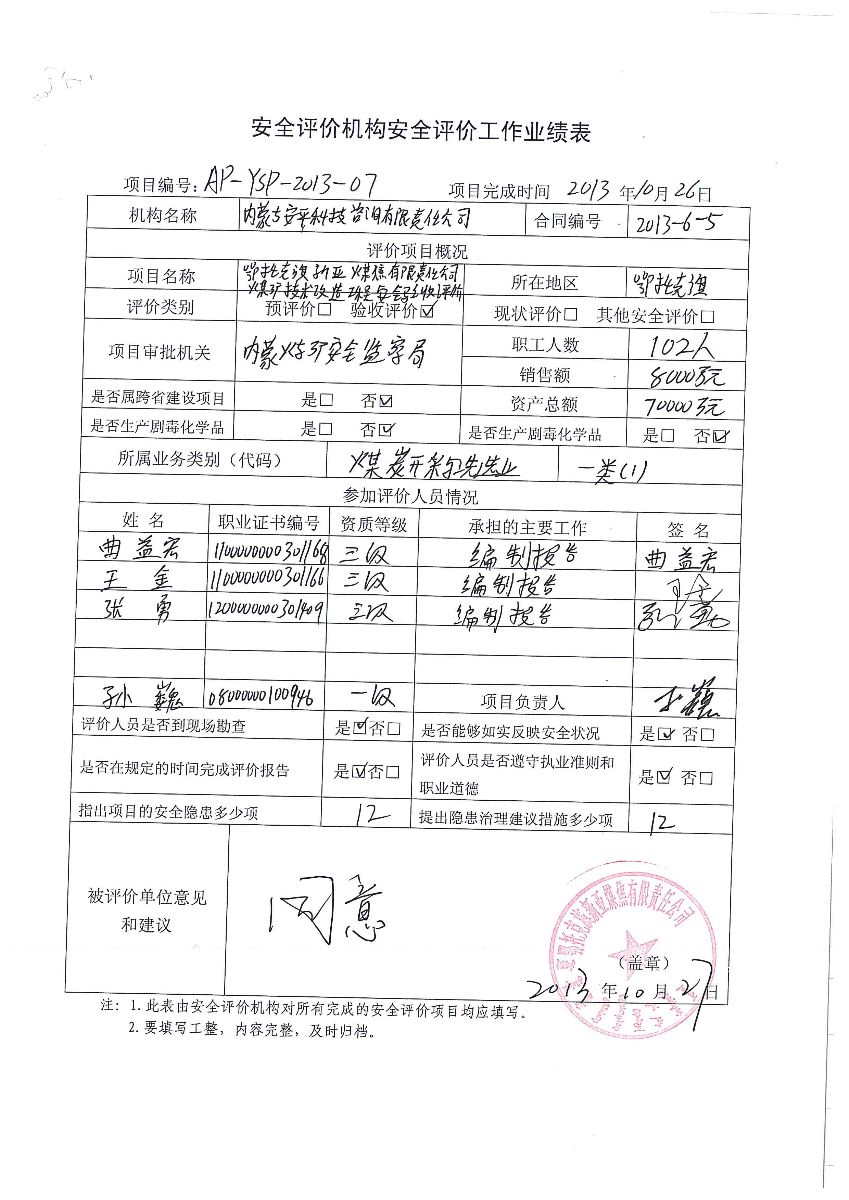 安全评价机构安全评价工作业绩表
项目编号：AP-YSP-2013-07 项目完成时间 2013 年10月26日
机构名称 内蒙古安平科技咨询有限责任公司 合同编号 2013-6-5
评价项目概况
项目名称 鄂托克旗新亚煤焦有限责任公司
煤矿技术改造项目安全验收评价 所在地区 鄂托克旗
评价类别 预评价□ 验收评价☑ 现状评价□ 其他安全评价□
项目审批机关 内蒙煤矿安全监察局 职工人数 102人
销售额 8000万元
是否属跨省建设项目 是□ 否☑ 资产总额 70000万元
是否生产剧毒化学品 是□ 否☑ 是否生产剧毒化学品 是□ 否☑
所属业务类别（代码） 煤炭开采和洗选业 一类(1)
参加评价人员情况
姓 名 职业证书编号 资质等级 承担的主要工作 签 名
曲益宏 1100000000301168 三级 编制报告 曲益宏
王 金 1100000000301166 三级 编制报告
张 勇 1200000000301409 三级 编制报告
孙 巍 0800000100946 一级 项目负责人
评价人员是否到现场勘查 是☑否□ 是否能够如实反映安全状况 是☑ 否□
是否在规定的时间完成评价报告 是☑否□ 评价人员是否遵守执业准则和
职业道德 是☑ 否□
指出项目的安全隐患多少项 12 提出隐患治理建议措施多少项 12
被评价单位意见
和建议 同意
鄂托克旗新亚煤焦有限责任公司
（盖章）
2013 年10月27日
注：1.此表由安全评价机构对所有完成的安全评价项目均应填写。
2.要填写工整，内容完整，及时归档。